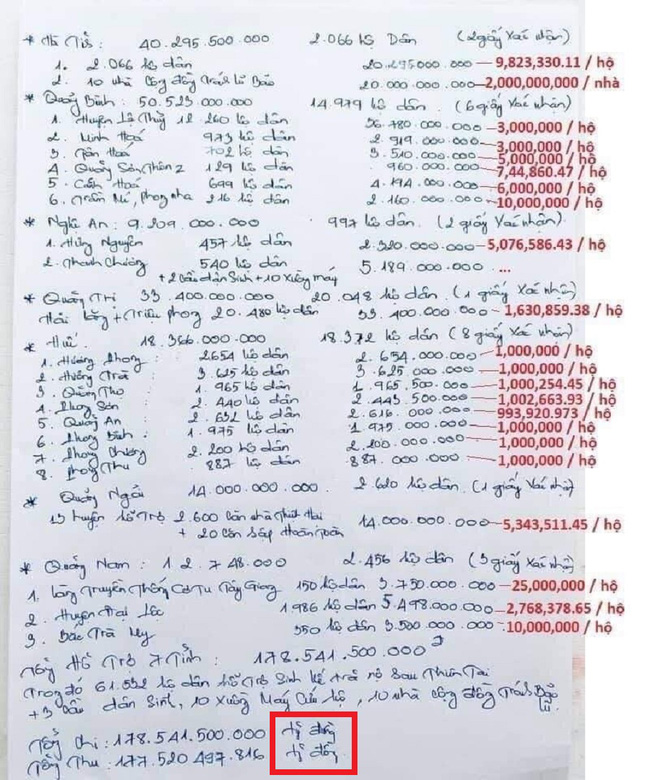 * Hà Tĩnh: 40.295.500.000 2.066 hộ Dân (2 giấy Xác nhận)
1. 2.066 hộ dân 20.295.000.000 — 9,823,330.11 / hộ
2. 10 nhà Cộng đồng Tránh lũ Bão 20.000.000.000 — 2,000,000,000 / nhà
* Quảng Bình: 50.523.000.000 14.979 hộ dân. (6 giấy Xác nhận)
1. Huyện Lệ Thủy 12.260 hộ dân 36.780.000.000 — 3,000,000 / hộ
2. Minh Hoá 973 hộ dân 2.919.000.000 — 3,000,000 / hộ
3. Tân Hoá 702 hộ dân 3.510.000.000 — 5,000,000 / hộ
4. Quảng Sơn, Thôn 2 129 hộ dân 960.000.000 — 7,44,860.47 / hộ
5. Cảnh Hoá 699 hộ dân 4.194.000.000 — 6,000,000 / hộ
6. Phong Nha 216 hộ dân 2.160.000.000 — 10,000,000 / hộ
* Nghệ An: 9.209.000.000 997 hộ dân. (2 giấy Xác nhận).
1. Hưng Nguyên 457 hộ dân 2.320.000.000 — 5,076,586.43 / hộ
2. Thanh Chương 540 hộ dân 5.189.000.000 ...
+ 2 Cầu dân Sinh + 10 xuồng máy
* Quảng Trị 33.400.000.000 20.048 hộ dân. (1 giấy Xác nhận)
Hải Lăng + Triệu Phong 20.480 hộ dân 33.400.000.000 — 1,630,859.38 / hộ
* Huế: 18.366.000.000 18.372 hộ dân (8 giấy Xác nhận)
1. Hương Phong: 2654 hộ dân 2.654.000.000 — 1,000,000 / hộ
2. Hương Trà : 3.625 hộ dân 3.625.000.000 — 1,000,000 / hộ
3. Quảng Thọ : 1.965 hộ dân 1.965.500.000 — 1,000,254.45 / hộ
4. Phong Sơn : 2.440 hộ dân 2.443.500.000 — 1,002,663.93 / hộ
5. Quảng An : 2.632 hộ dân 2.616.000.000 — 993,920.973 / hộ
6. Phong Bình : 1.975 hộ dân 1.975.000.000 — 1,000,000 / hộ
7. Phong Chương : 2.200 hộ dân 2.200.000.000 — 1,000,000 / hộ
8. Phong Thu : 887 hộ dân 887.000.000 — 1,000,000 / hộ
* Quảng Ngãi 14.000.000.000 2.620 hộ dân. (1 giấy Xác nhận)
13 huyện hỗ Trợ 2.600 Căn nhà Thiệt Hại 14.000.000.000 — 5,343,511.45 / hộ
+ 20 Căn Sập Hoàn Toàn
* Quảng Nam: 12.748.000 2.456 hộ dân (3 giấy Xác nhận)
1. Làng Truyền Thống Cơ Tu Tây Giang 150 hộ dân 3.750.000.000 — 25,000,000 / hộ
2. Huyện Đại Lộc 1986 hộ dân 5.498.000.000 — 2,768,378.65 / hộ
3. Bắc Trà My 350 hộ dân 3.500.000.000 — 10,000,000 / hộ
Tổng Hỗ Trợ 7 Tỉnh: 178.541.500.000 đ
Trong đó 61.532 hộ dân hỗ Trợ Sinh kế trả nợ Sau Thiên Tai
+ 3 Cầu dân Sinh, 10 Xuồng Máy Cứu hộ, 10 nhà Cộng đồng Tránh Bão Lũ.
Tổng Chi: 178.541.500.000 tỷ đồng
Tổng Thu: 177.520.497.816 tỷ đồng